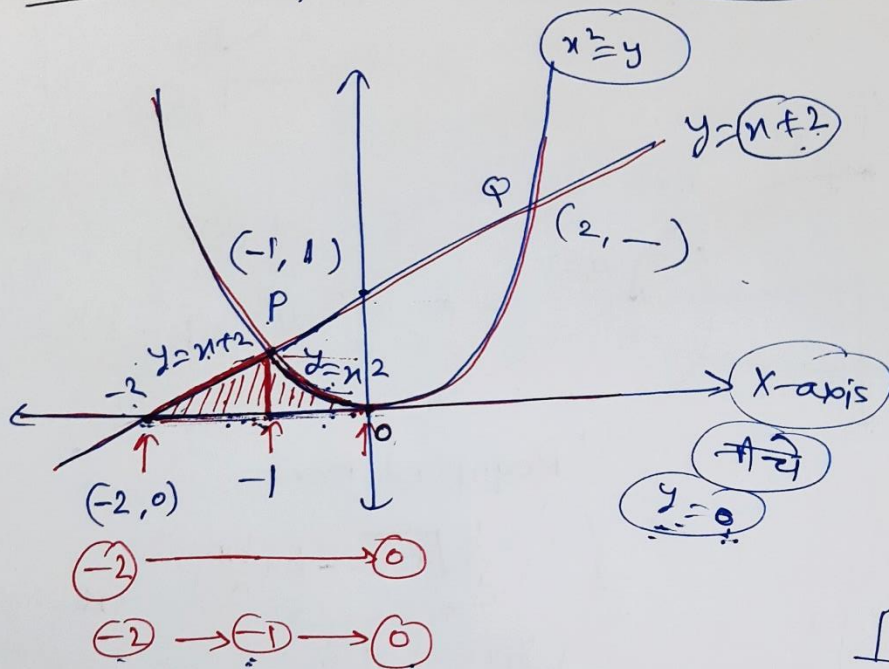 x²=y
y=x+2
Q
(2, —)
(-1, 1)
P
y=x+2
y=x²
-2
X-axis
0
नीचे
-1
(-2, 0)
y=0
-2 → 0
-2 → -1 → 0